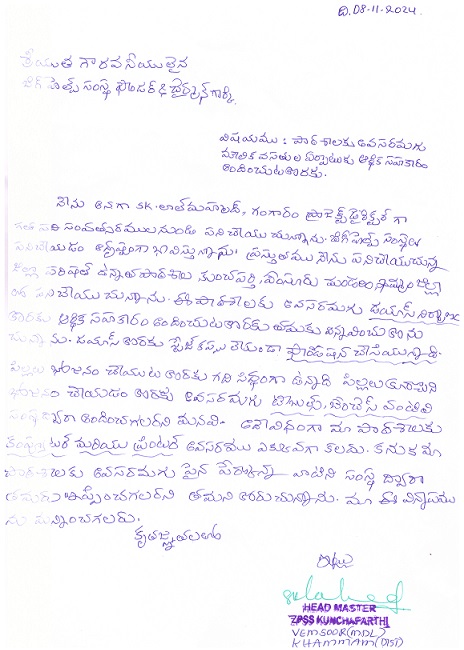 ది. 08-11-2024.
శ్రీయుత గౌరవనీయులైన
బిగ్ హెల్ప్ సంస్థ ఫౌండర్ & ఛైర్మన్ గార్కి,
విషయము : పాఠశాలకు అవసరమగు
మౌలిక వసతుల ఏర్పాటుకు ఆర్థిక సహకారం
అందించుట కొరకు.
నేను అనగా SK. లాల్ మహ్మద్, గంగారం ప్రాజెక్ట్ డైరెక్టర్ గా
గత సంవత్సరముల నుండి పని చేయు చున్నాను. బిగ్ హెల్ప్ సంస్థలో
పనిచేయడం అదృష్టంగా భావిస్తున్నాను. ప్రస్తుతము నేను పనిచేయుచున్న
జిల్లా పరిషత్ ఉన్నత పాఠశాల కుంచపర్తి, వేంసూరు మండలం, ఖమ్మం జిల్లా
పని చేయు చున్నాను. ఈ పాఠశాలకు అవసరమగు డయాస్ నిర్మాణం
కొరకు ఆర్థిక సహకారం అందించుట కొరకు తమకు విన్నవించు కొను
చున్నాను. డయాస్ కొరకు ఫౌండేషన్ చేసియున్నారు.
పిల్లలు భోజనం చేయుట కొరకు గది సిద్ధంగా ఉన్నది పిల్లలు
భోజనం చేయడం కొరకు అవసరమగు టేబుల్స్, బెంచెస్ వంటివి
సంస్థ ద్వారా అందించగలరని మనవి. అదేవిధంగా మా పాఠశాలకు
కంప్యూటర్ మరియు ప్రింటర్ అవసరము ఎక్కువగా కలదు. కనుక మా
పాఠశాలకు అవసరమగు పైన పేర్కొన్న వాటిని సంస్థ ద్వారా
తమరు ఇప్పించగలరని తమని కోరుచున్నాను. మా ఈ విన్నపము
ను మన్నించగలరు.
కృతజ్ఞతలతో
ఇట్లు
HEAD MASTER
ZPSS KUNCHAPARTHI
VEMSOOR(MDL)
KHAMMAM(DIST)